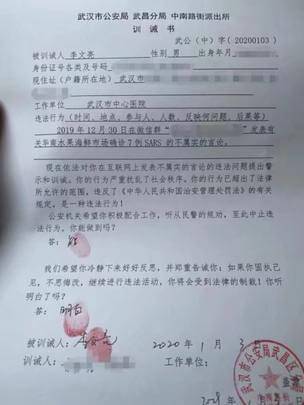 武汉市公安局 武昌分局 中南路街派出所
训 诫 书
武公(中)字(20200103)
被训诫人 李文亮 性别 男 出身年月
身份证号各类及号码
现住址(户籍所在地) 武汉市
工作单位 武汉市中心医院
违法行为(时间、地点、参与人、人数、反映何问题、后果等)
2019年12月30日在微信群" "发表有
关华南水果海鲜市场确诊7例SARS的不属实的言论。
现在依法对你在互联网上发表不属实的言论的违法问题提出警
示和训诫。你的行为严重扰乱了社会秩序。你的行为已超出了法律
所允许的范围,违反了《中华人民共和国治安管理处罚法》的有关
规定,是一种违法行为!
公安机关希望你积极配合工作,听从民警的规劝,至此中止违
法行为。你能做到吗?
答: 能
我们希望你冷静下来好好反思,并郑重告诫你:如果你固执己
见,不思悔改,继续进行违法活动,你将会受到法律的制裁!你听
明白了吗?
答: 明白
被训诫人: 李文亮 2020年 1月 3
训诫人: 工作单位:
武汉市公安局武昌区